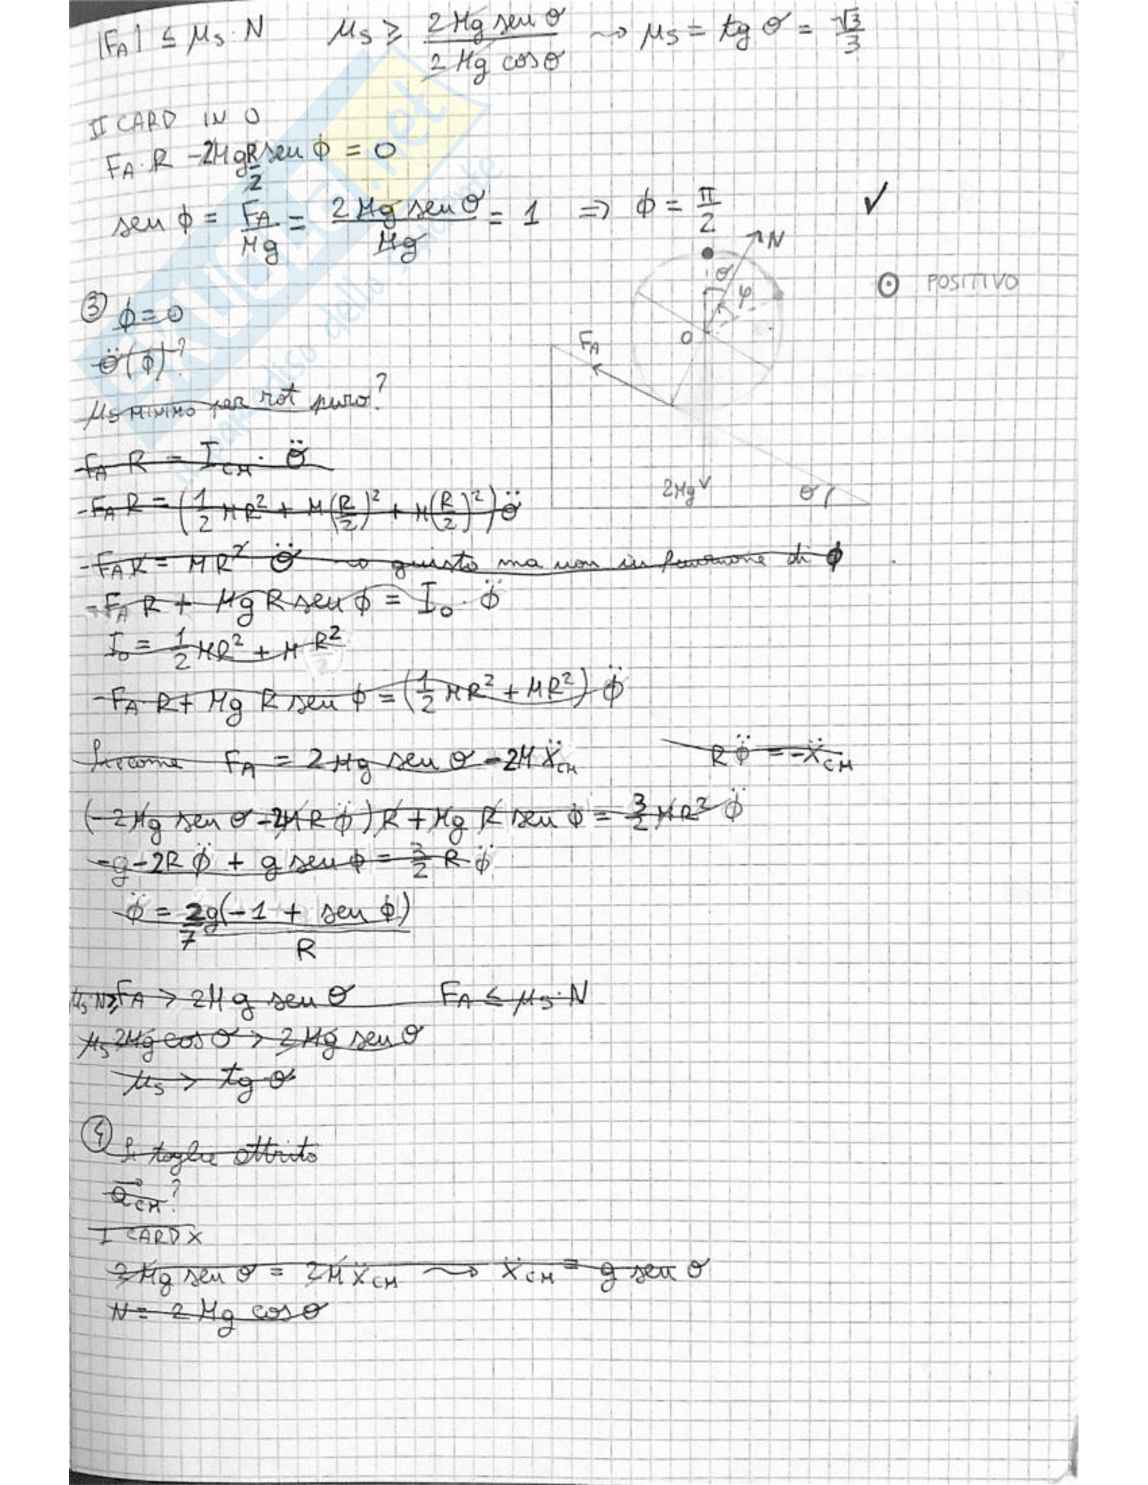 |F_A| ≤ μ_s · N    μ_s ≥ 2Mg sen θ / 2Mg cos θ ⇝ μ_s = tg θ = √3/3
II CARD IN O
F_A · R - 2Mg R/2 sen ϕ = 0
sen ϕ = F_A/Mg = 2Mg sen θ/Mg = 1 ⇒ ϕ = π/2 ✓
N
⊙ POSITIVO
θ
φ
③ ϕ = 0
O
F_A
θ̈(ϕ)?
μ_s MINIMO per rot puro?
F_A R = I_CM · θ̈
2Mg
θ
-F_A R = (1/2 MR² + M(R/2)² + M(R/2)²) θ̈
-F_A R = MR² θ̈ → giusto ma non in funzione di ϕ
-F_A R + Mg R sen ϕ = I_O · ϕ̈
I_O = 1/2 MR² + M R²
-F_A R + Mg R sen ϕ = (1/2 MR² + MR²) ϕ̈
Siccome F_A = 2Mg sen θ - 2M ẍ_CM    R ϕ̈ = -ẍ_CM
(-2Mg sen θ - 2M R ϕ̈) R + Mg R sen ϕ = 3/2 MR² ϕ̈
-g - 2R ϕ̈ + g sen ϕ = 3/2 R ϕ̈
ϕ̈ = 2/7 g(-1 + sen ϕ) / R
μ_s N ≥ F_A > 2Mg sen θ    F_A ≤ μ_s · N
μ_s 2Mg cos θ > 2Mg sen θ
μ_s > tg θ
④ Si toglie attrito
a⃗_CM?
I CARD X
2Mg sen θ = 2M ẍ_CM ⇝ ẍ_CM = g sen θ
N = 2Mg cos θ